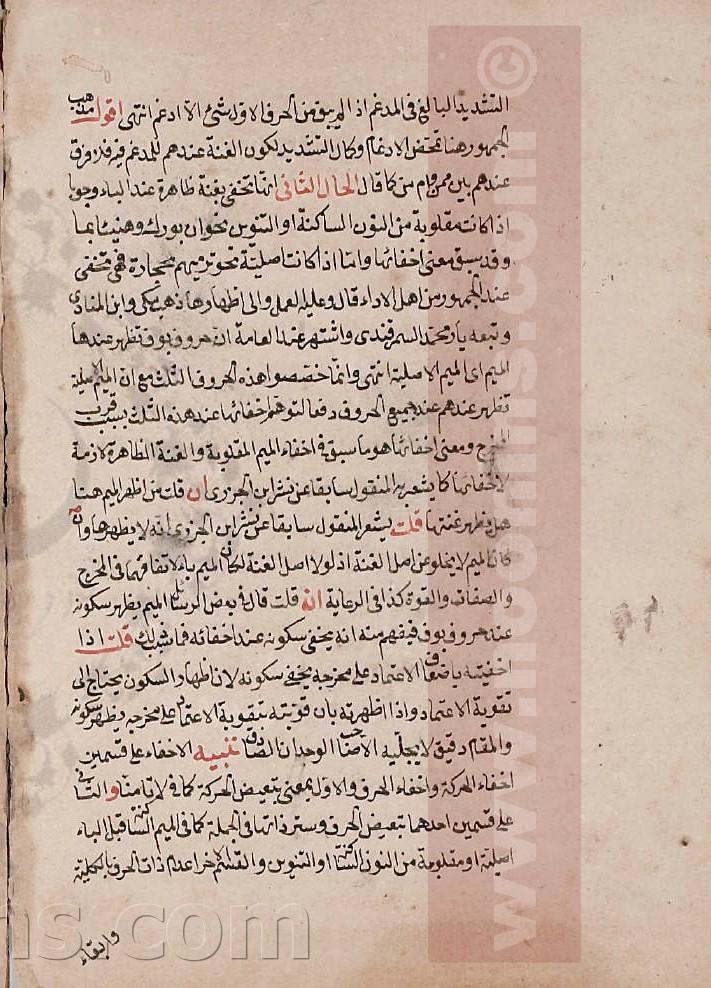 التشديد البالغ في المدغم اذ لم يبق من الحرف الاول شئ الا ادغم انتهى اقول مذهب
الجمهور هنا تمحض الادغام وكمال التشديد لكون الغنة عندهم للمدغم فيه فلا فرق
عندهم بين ممن وام من كما قال الحال الثاني انها تخفى بغنة ظاهرة عند الباء وجوبا
اذا كانت مقلوبة من النون الساكنة او التنوين نحو ان بورك وهنيئا بما
وقد سبق معنى اخفائها وامّا اذا كانت اصليّة نحو ترميهم بحجارة فهي تخفى
عند الجمهور من اهل الاداء قال وعليه العمل والى اظهارها ذهب مكي وابن المنادى
وتبعه يار محمد السمرقندى واشتهر عند العامة ان حروف بوف تظهر عندها
الميم اى الميم الاصلية انتهى وانما خصصوا هذه الحروف الثلث مع ان الميم الاصلية
تظهر عندهم عند جميع الحروف دفعا لتوهم اخفائها عند هذه الثلث بسبب قرب
المخرج ومعنى اخفائها هو ما سبق في اخفاء الميم المقلوبة والغنة الظاهرة لازمة
لاخفائها كما يشعر به المنقول سابقا عن نشر ابن الجزرى ان قلت من اظهر الميم هنا
هل يظهر غنتها قلت يشعر المنقول سابقا عن نشر ابن الجزرى انه لا يظهرها وان
كان الميم لا يخلو عن اصل الغنة اذ لولا اصل الغنة لكان الميم باء لاتفاقهما في المخرج
والصفات والقوة كذا في الرعاية ان قلت قال في بعض الرسائل الميم يظهر سكونه
عند حروف بوف فيفهم منه انه يخفى سكونه عند اخفائه فما سبب ذلك قلت اذا
اخفيته باضعاف الاعتماد على مخرجه يخفى سكونه لان اظهار السكون يحتاج الى
تقوية الاعتماد واذا اظهرته بان قويته بتقوية الاعتماد على مخرجه يظهر سكونه
والمقام دقيق لا يجليه الا صاحب الوجدان الصادق تنبيه الاخفاء على قسمين
اخفاء الحركة واخفاء الحرف والاول بمعنى تبعيض الحركة كما في لا تامنا والثاني
على قسمين احدهما تبعيض الحرف وستر ذاتها في الجملة كما في الميم الساكنة قبل الباء
اصلية او مقلوبة من النون الساكنة او التنوين والقسم الاخر اعدام ذات الحرف بالكلية
وابقاء